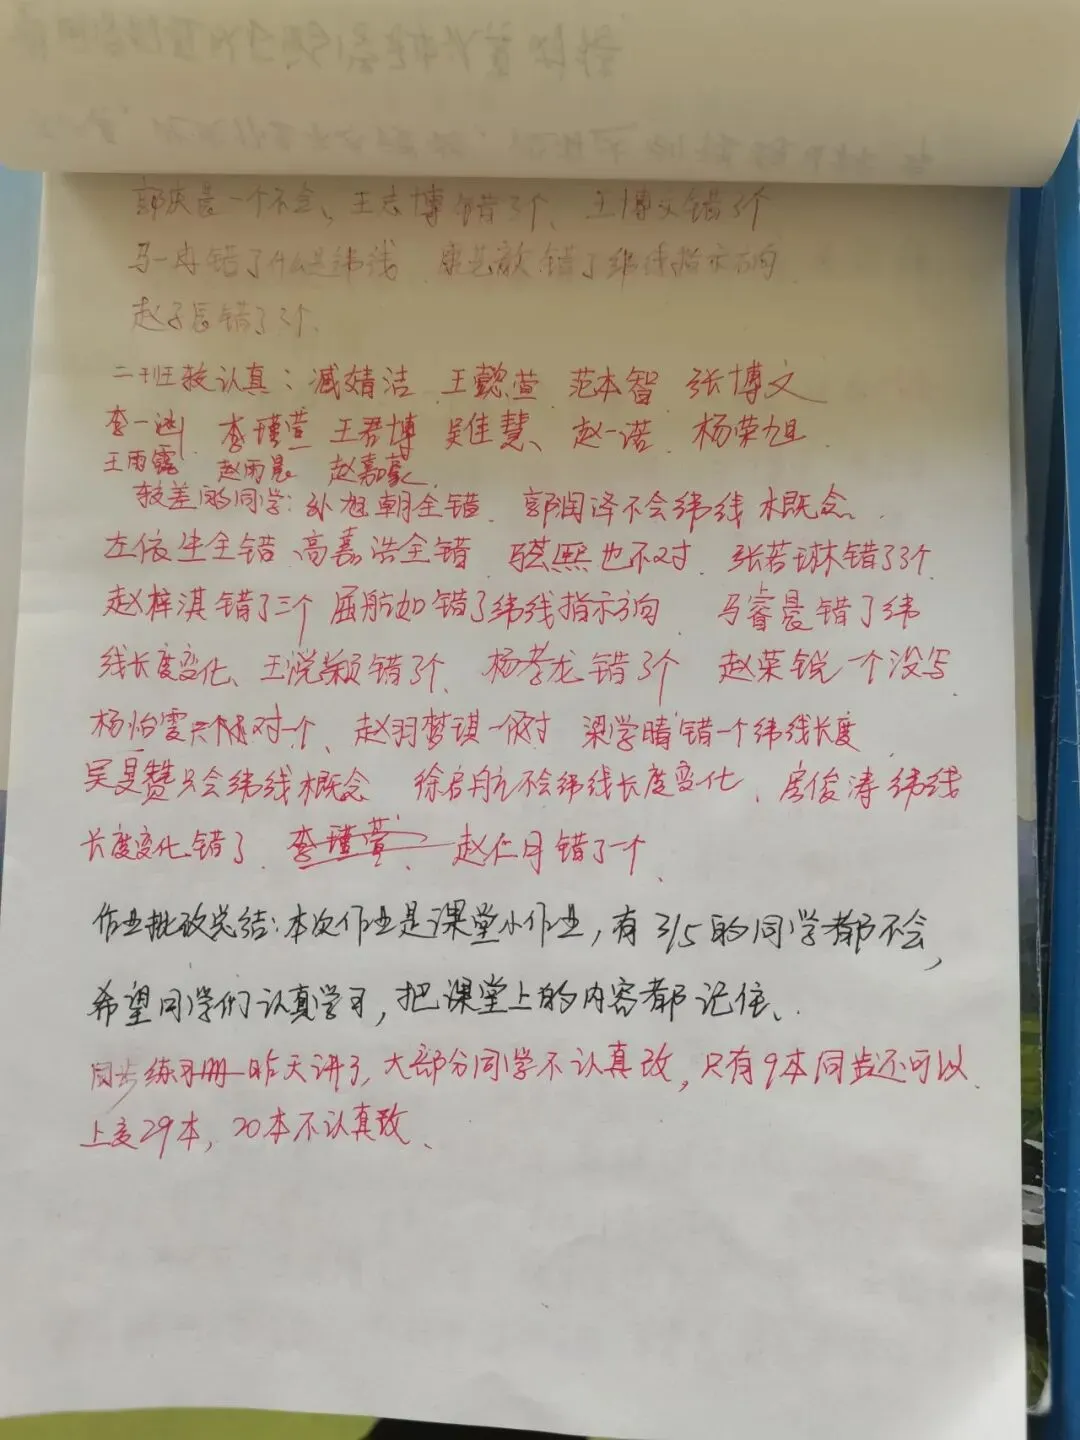 郭庆晨一个不会、王志博错了3个、王博文错3个
马一冉错了什么是纬线 康艺歆错了纬线指示方向
赵子辰错了3个、
二班较认真：臧婧洁 王懿萱 范本智 张博文
李一 李瑾萱 王君博 吴佳慧、赵一诺 杨荣旭
王雨露 赵雨晨 赵嘉豪
较差的同学：孙旭朝全错、郭润泽不会纬线概念、
左依生全错 高嘉浩全错 熙也不对、张若琳错了3个
赵梓淇错了三个 屈航如错了纬线指示方向 马睿晨错了纬
线长度变化、王悦颖错了个、杨孝龙错3个 赵荣锐一个没写
杨怡雯只对一个、赵羽梦琪一个对 梁学晴错一个纬线长度
吴旻赞只会纬线概念 徐启航不会纬线长度变化、房俊涛纬线
长度变化错了、李瑾萱、赵仁月错了一个、
作业批改总结：本次作业是课堂小作业，有3/5的同学都不会，
希望同学们认真学习，把课堂上的内容都记住、
同步练习册昨天讲了，大部分同学不认真改，只有9本同步还可以、
上交29本，20本不认真改、